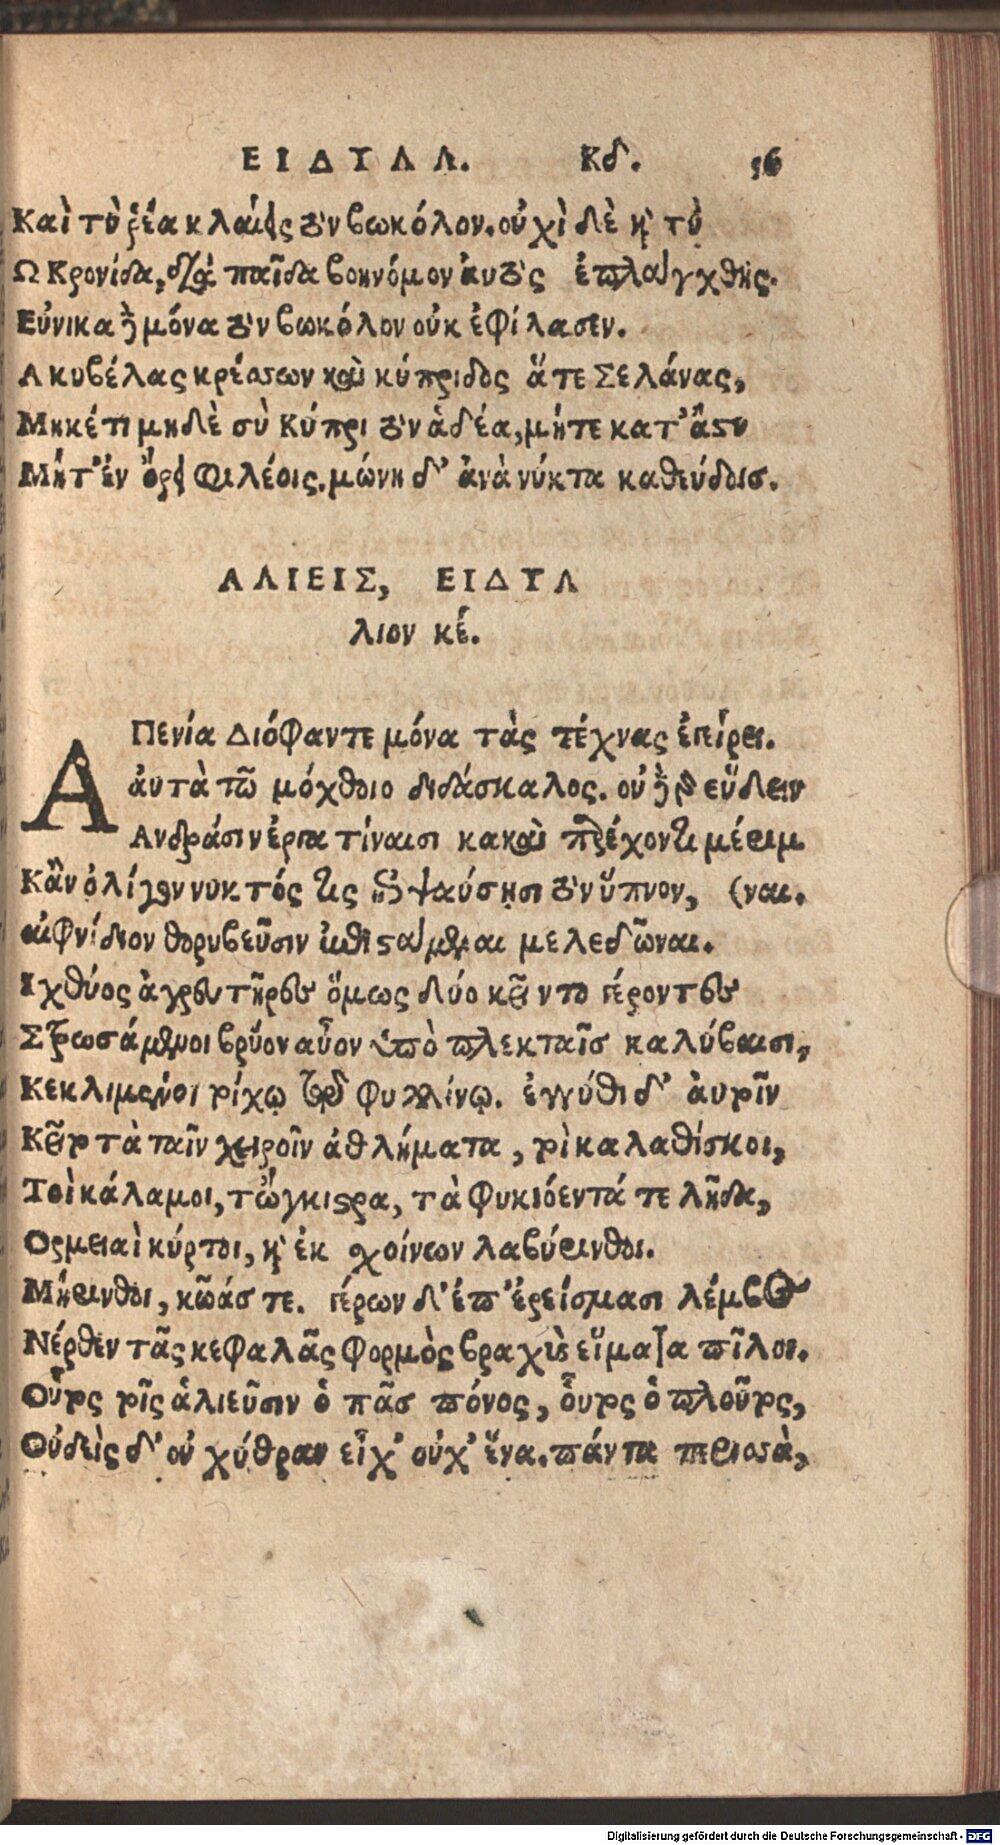 ΕΙΔΥΛΛ. Κδ. 56
Καὶ τὺ ῥέα κλαίεις τὸν βωκόλον. οὐχὶ δὲ καὶ τὺ
Ω Κρονίδα, διὰ παῖδα βοηνόμον ἀυτὸς ἐπλάγχθης.
Εὐνικα δὲ μόνα τὸν βωκόλον οὐκ ἐφίλασεν.
Α κυβέλας κρέσσων καὶ κύπριδος ἅτε Σελάνας,
Μηκέτι μηδὲ σὺ Κύπρι τὸν ἁδέα, μήτε κατ' ἄστυ
Μήτ' ἐν ὄρει φιλέοις. μώνη δ' ἀνὰ νύκτα καθεύδοις.
ΑΛΙΕΙΣ, ΕΙΔΥΛ
λιον κε.
Α Πενία Διόφαντε μόνα τὰς τέχνας ἐγείρει.
ἀυτὰ τῶ μόχθοιο διδάσκαλος. οὐ δὲ γὰρ εὕδειν
Ανδράσιν ἐργατίναισι κακαὶ παρέχοντι μέριμ
Κἂν ὀλίγον νυκτός τις ἐπιψαύσησι τὸν ὕπνον, (ναι.
αἰφνίδιον θορυβεῦσιν ἐφιστάμεναι μελεδῶναι.
Ιχθύος ἀγρευτῆρες ὅμως δύο κεῖντο γέροντες
Στρωσάμενοι βρύον αὖον ὑπὸ πλεκταῖς καλύβαισι,
Κεκλιμένοι τοίχῳ τῷ φυλλίνῳ. ἐγγύθι δ' ἀυτοῖν
Κεῖτο τὰ ταῖν χειροῖν ἀθλήματα, τοὶ καλαθίσκοι,
Τοὶ κάλαμοι, τὤγκιστρα, τὰ φυκιόεντά τε λῆδα,
Ορμειαὶ κύρτοι, καὶ ἐκ σχοίνων λαβύρινθοι.
Μήρινθοι, κῶάς τε. γέρων δ' ἐπ' ἐρείσμασι λέμβος
Νέρθεν τᾶς κεφαλᾶς φορμὸς βραχὺς εἵματα πῖλοι.
Οὗτος τοῖς ἁλιεῦσιν ὁ πᾶς πόνος, οὗτος ὁ πλοῦτος,
Οὐδεὶς δ' οὐ χύθραν εἶχ' οὐχ' ἕνα. πάντα περισσὰ,
Digitalisierung gefördert durch die Deutsche Forschungsgemeinschaft - DFG